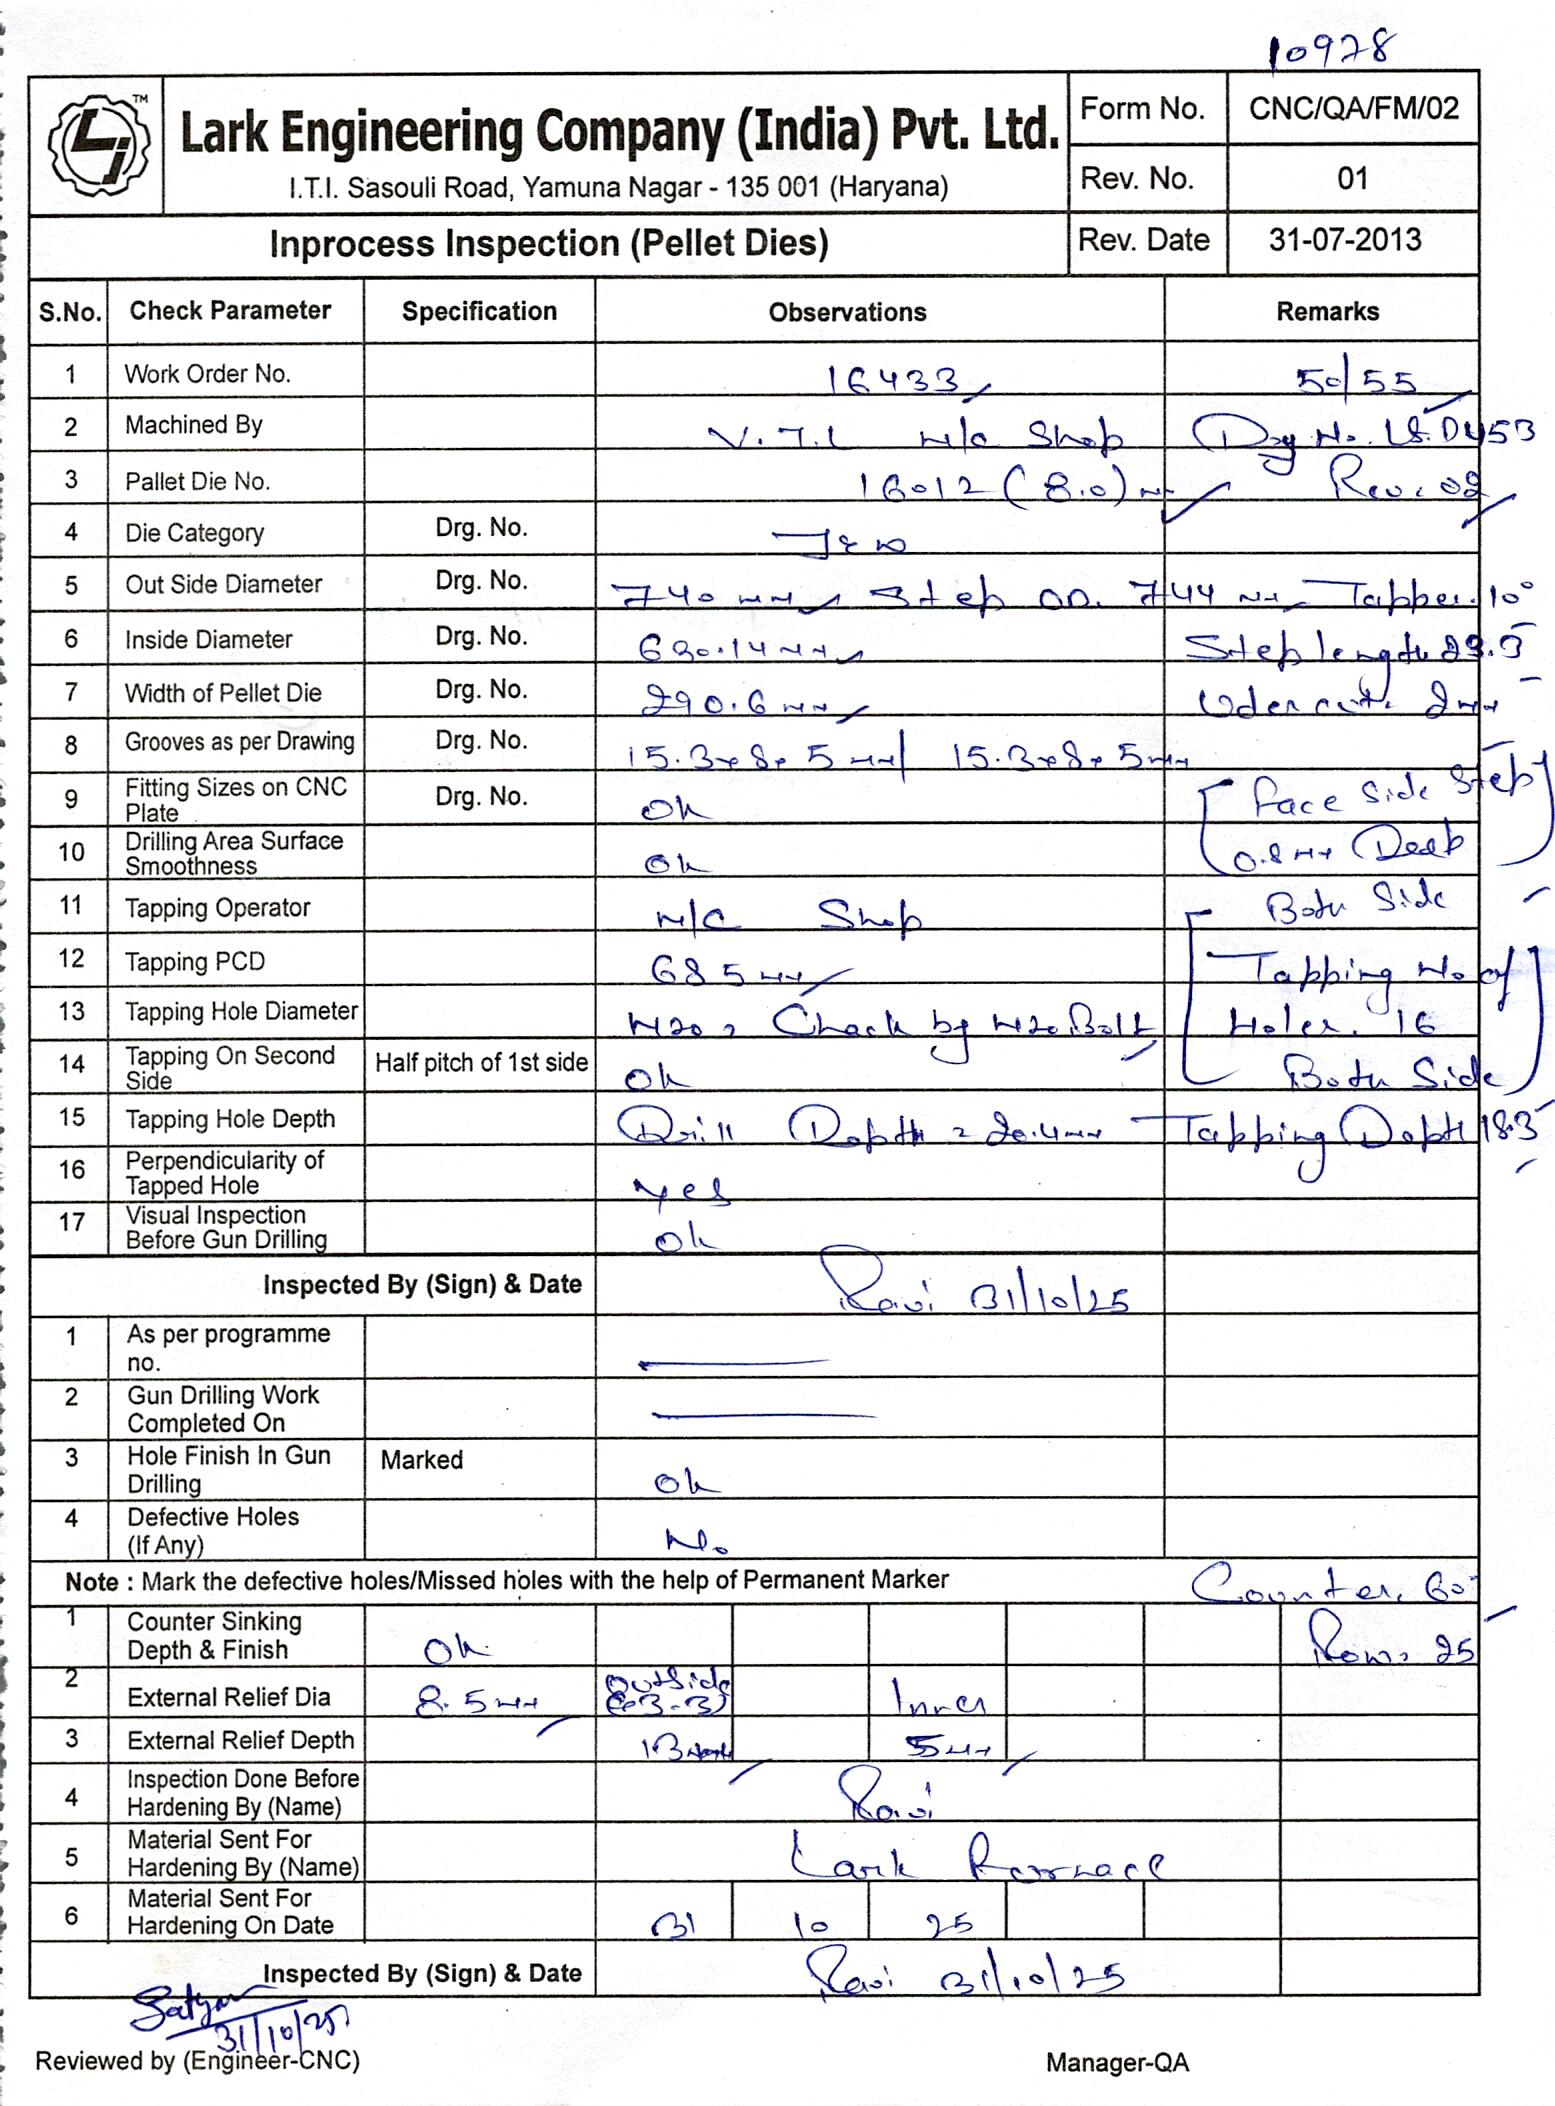 10978
TM
Lark Engineering Company (India) Pvt. Ltd.
I.T.I. Sasouli Road, Yamuna Nagar - 135 001 (Haryana)
Form No. CNC/QA/FM/02
Rev. No. 01
Inprocess Inspection (Pellet Dies)
Rev. Date 31-07-2013
S.No. Check Parameter Specification Observations Remarks
1 Work Order No. 16433 50/55
2 Machined By V.T.L M/C Shop Drg No. LS.D453
3 Pallet Die No. 16012 (8.0) mm Rev. 02
4 Die Category Drg. No.
5 Out Side Diameter Drg. No. 740 mm Step OD. 744 mm Tapper. 10°
6 Inside Diameter Drg. No. 630.14 mm Step length 29.3
7 Width of Pellet Die Drg. No. 290.6 mm Udercut. 2mm
8 Grooves as per Drawing Drg. No. 15.3x8x5mm/ 15.3x8x5mm
9 Fitting Sizes on CNC Plate Drg. No. Ok [Face Side Step
10 Drilling Area Surface Smoothness Ok 0.8mm Deep]
11 Tapping Operator M/C Shop Both Side
12 Tapping PCD 685mm [Tapping No of
13 Tapping Hole Diameter M20, Check by M20 Bolt Holes. 16
14 Tapping On Second Side Half pitch of 1st side Ok Both Side]
15 Tapping Hole Depth Drill Depth = 20.4mm Tapping Depth 18.3
16 Perpendicularity of Tapped Hole Yes
17 Visual Inspection Before Gun Drilling Ok
Inspected By (Sign) & Date Ravi 31/10/25
1 As per programme no.
2 Gun Drilling Work Completed On
3 Hole Finish In Gun Drilling Marked Ok
4 Defective Holes (If Any) No
Note : Mark the defective holes/Missed holes with the help of Permanent Marker Counter. 60°
1 Counter Sinking Depth & Finish Ok Row. 25
2 External Relief Dia 8.5mm Outside (3-3) Inner
3 External Relief Depth 13mm 5mm
4 Inspection Done Before Hardening By (Name) Ravi
5 Material Sent For Hardening By (Name) Lark
6 Material Sent For Hardening On Date 31 10 25
Inspected By (Sign) & Date Ravi 31/10/25
Satyam
31/10/25
Reviewed by (Engineer-CNC) Manager-QA